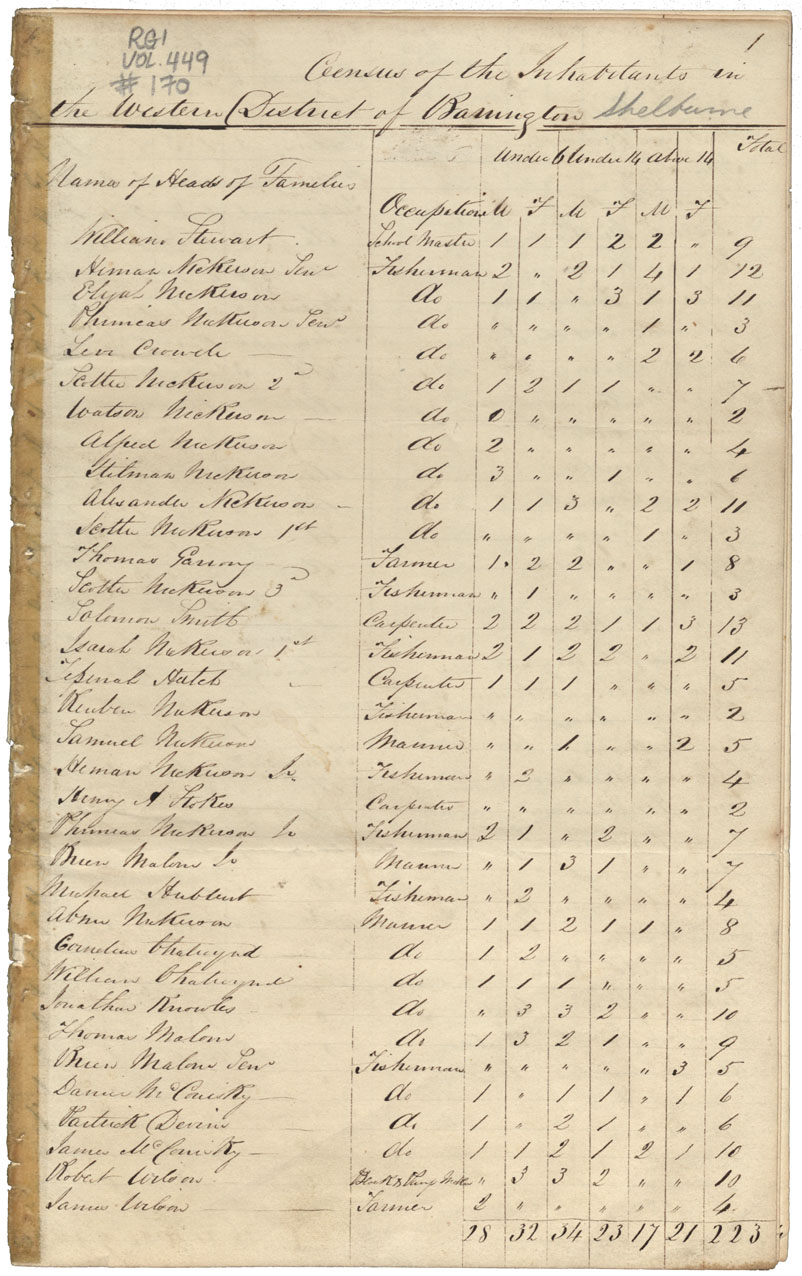 RG1
VOL. 449
# 170
1
Census of the Inhabitants in
the Western District of Barrington Shelburne
Under 6 Under 14 above 14 Total
Names of Heads of Families
Occupation M F M F M F
William Stewart School Master 1 1 1 2 2 " 9
Heman Nickerson Senr Fisherman 2 " 2 1 4 1 12
Elijah Nickerson do 1 1 " 3 1 3 11
Phineas Nickerson Senr do " " " " 1 " 3
Levi Crowell do " " " " 2 2 6
Scotter Nickerson 2d do 1 2 1 1 " " 7
Watson Nickerson do 0 " " " " " 2
Alfred Nickerson do 2 " " " " " 4
Stilman Nickerson do 3 " " 1 " " 6
Alexander Nickerson do 1 1 3 " 2 2 11
Scotter Nickerson 1st do " " " " 1 " 3
Thomas Farmer 1 2 2 " " 1 8
Scotter Nickerson 3d Fisherman " 1 " " " " 3
Solomon Smith Carpenter 2 2 2 1 1 3 13
Isaiah Nickerson 1st Fisherman 2 1 2 2 " 2 11
Hatch Carpenter 1 1 1 " " " 5
Reuben Nickerson Fisherman " " " " " " 2
Samuel Nickerson Mariner " " 1 " " 2 5
Heman Nickerson Jr Fisherman " 2 " " " " 4
Henry A Stokes Carpenter " " " " " " 2
Phineas Nickerson Jr Fisherman 2 1 " 2 " " 7
Brien Malone Jr Mariner " 1 3 1 " " 7
Michael Fisherman " 2 " " " " 4
Abner Nickerson Mariner 1 1 2 1 1 " 8
Cornelius Chatwynd do 1 2 " " " " 5
William Chatwynd do 1 1 1 " " " 5
Jonathan Knowles do " 3 3 2 " " 10
Thomas Malone do 1 3 2 1 " " 9
Brien Malone Senr Fisherman " " " " " 3 5
Daniel McComisky do 1 " 1 1 " 1 6
Partrick Devine do 1 " 2 1 " " 6
James McComisky do 1 1 2 1 2 1 10
Robert Wilson " 3 3 2 " " 10
James Wilson Farmer 2 " " " " " 4
28 32 34 23 17 21 223